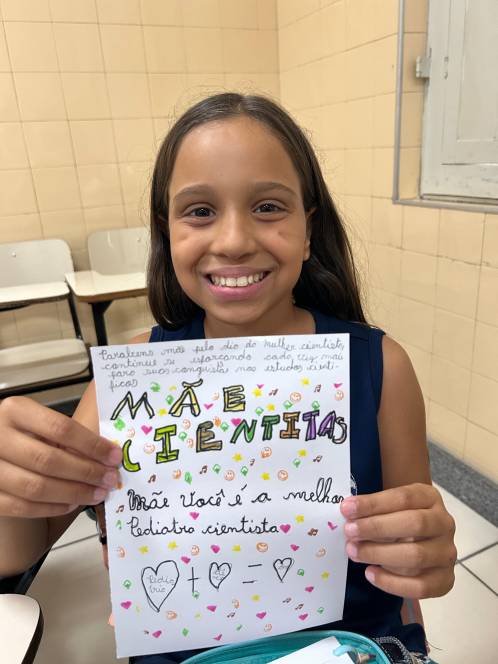 Parabéns mãe pelo dia da mulher cientista,
continue se esforçando cada vez mais
para suas conquistas nos estudos cienti-
ficos
MÃE
CIENTITAS
Mãe você é a melhor
Pediatra cientista
Pedia + =